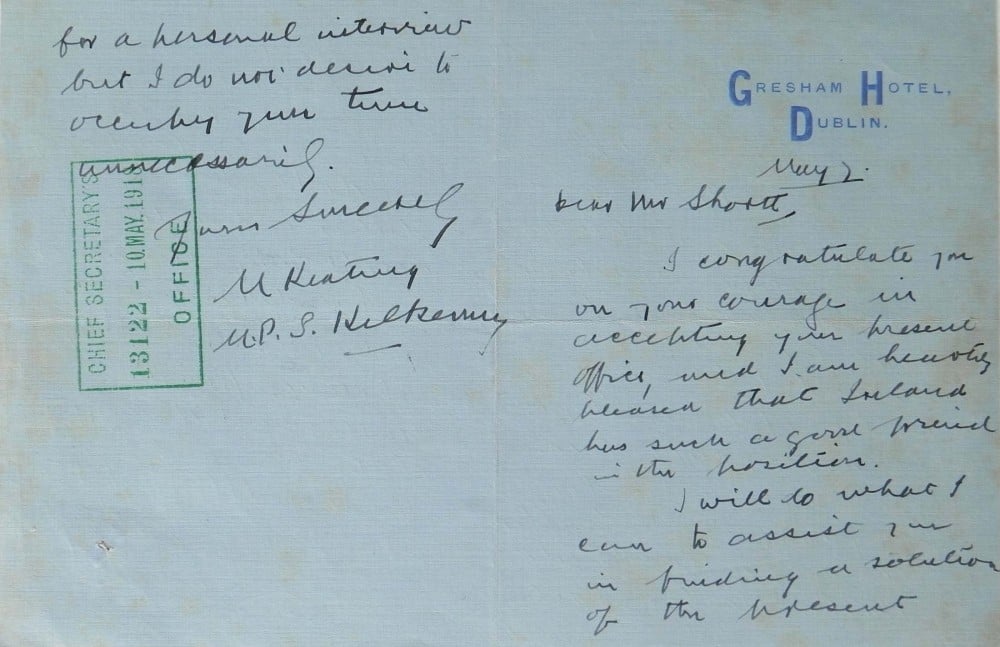 GRESHAM HOTEL,
DUBLIN.
May
Dear Mr Shortt,
I congratulate you
on your courage in
accepting your present
office, and I am heartily
pleased that Ireland
has such a good friend
in the position.
I will do what I
can to assist you
in finding a solution
of the present
for a personal interview
but I do not desire to
occupy your time
unnecessarily.
Yours Sincerely
M Keating
M.P. S. Kilkenny
CHIEF SECRETARY'S
13122 - 10.MAY.1918
OFFICE